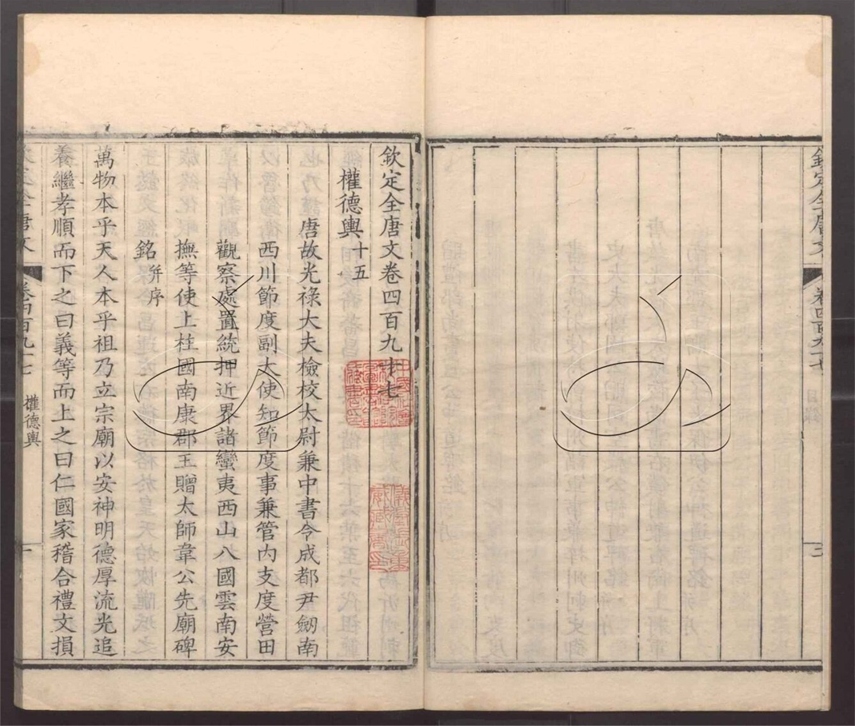 欽定全唐文
卷四百九十七
三
欽定全唐文卷四百九十七
權德輿十五
唐故光祿大夫檢校太尉兼中書令成都尹劒南
西川節度副大使知節度事兼管内支度營田
觀察處置統押近界諸蠻夷西山八國雲南安
撫等使上柱國南康郡王贈太師韋公先廟碑
銘并序
萬物本乎天人本乎祖乃立宗廟以安神明德厚流光追
養繼孝順而下之曰義等而上之曰仁國家稽合禮文損
欽定全唐文
卷四百九十七
權德輿
一